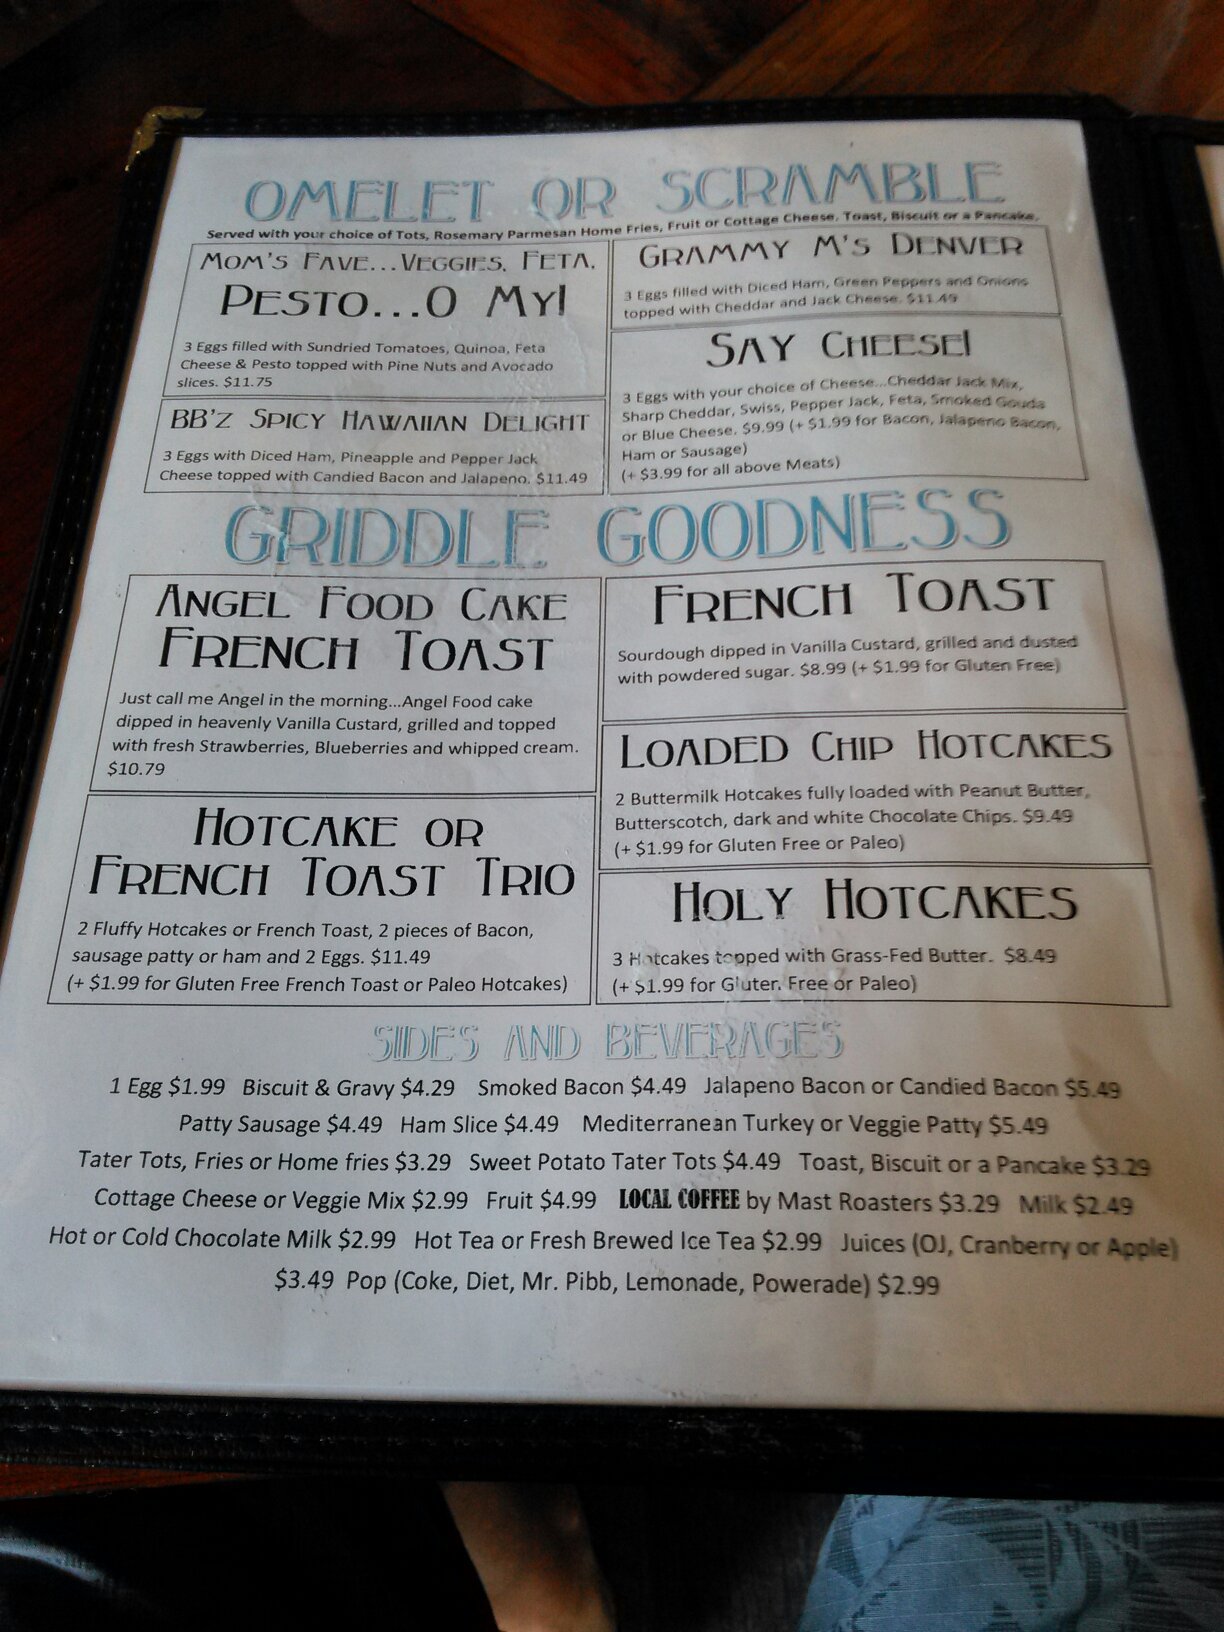 OMELET OR SCRAMBLE
Served with your choice of Tots, Rosemary Parmesan Home Fries, Fruit or Cottage Cheese. Toast, Biscuit or a Pancake.
MOM'S FAVE...VEGGIES, FETA,
PESTO...O MY!
3 Eggs filled with Sundried Tomatoes, Quinoa, Feta
Cheese & Pesto topped with Pine Nuts and Avocado
slices. $11.75
BB'Z SPICY HAWAIIAN DELIGHT
3 Eggs with Diced Ham, Pineapple and Pepper Jack
Cheese topped with Candied Bacon and Jalapeno. $11.49
GRAMMY M'S DENVER
3 Eggs filled with Diced Ham, Green Peppers and Onions
topped with Cheddar and Jack Cheese. $11.49
SAY CHEESE!
3 Eggs with your choice of Cheese...Cheddar Jack Mix,
Sharp Cheddar, Swiss, Pepper Jack, Feta, Smoked Gouda
or Blue Cheese. $9.99 (+ $1.99 for Bacon, Jalapeno Bacon,
Ham or Sausage)
(+ $3.99 for all above Meats)
GRIDDLE GOODNESS
ANGEL FOOD CAKE
FRENCH TOAST
Just call me Angel in the morning...Angel Food cake
dipped in heavenly Vanilla Custard, grilled and topped
with fresh Strawberries, Blueberries and whipped cream.
$10.79
HOTCAKE OR
FRENCH TOAST TRIO
2 Fluffy Hotcakes or French Toast, 2 pieces of Bacon,
sausage patty or ham and 2 Eggs. $11.49
(+ $1.99 for Gluten Free French Toast or Paleo Hotcakes)
FRENCH TOAST
Sourdough dipped in Vanilla Custard, grilled and dusted
with powdered sugar. $8.99 (+ $1.99 for Gluten Free)
LOADED CHIP HOTCAKES
2 Buttermilk Hotcakes fully loaded with Peanut Butter,
Butterscotch, dark and white Chocolate Chips. $9.49
(+ $1.99 for Gluten Free or Paleo)
HOLY HOTCAKES
3 Hotcakes topped with Grass-Fed Butter. $8.49
(+ $1.99 for Gluten Free or Paleo)
SIDES AND BEVERAGES
1 Egg $1.99 Biscuit & Gravy $4.29 Smoked Bacon $4.49 Jalapeno Bacon or Candied Bacon $5.49
Patty Sausage $4.49 Ham Slice $4.49 Mediterranean Turkey or Veggie Patty $5.49
Tater Tots, Fries or Home fries $3.29 Sweet Potato Tater Tots $4.49 Toast, Biscuit or a Pancake $3.29
Cottage Cheese or Veggie Mix $2.99 Fruit $4.99 LOCAL COFFEE by Mast Roasters $3.29 Milk $2.49
Hot or Cold Chocolate Milk $2.99 Hot Tea or Fresh Brewed Ice Tea $2.99 Juices (OJ, Cranberry or Apple)
$3.49 Pop (Coke, Diet, Mr. Pibb, Lemonade, Powerade) $2.99